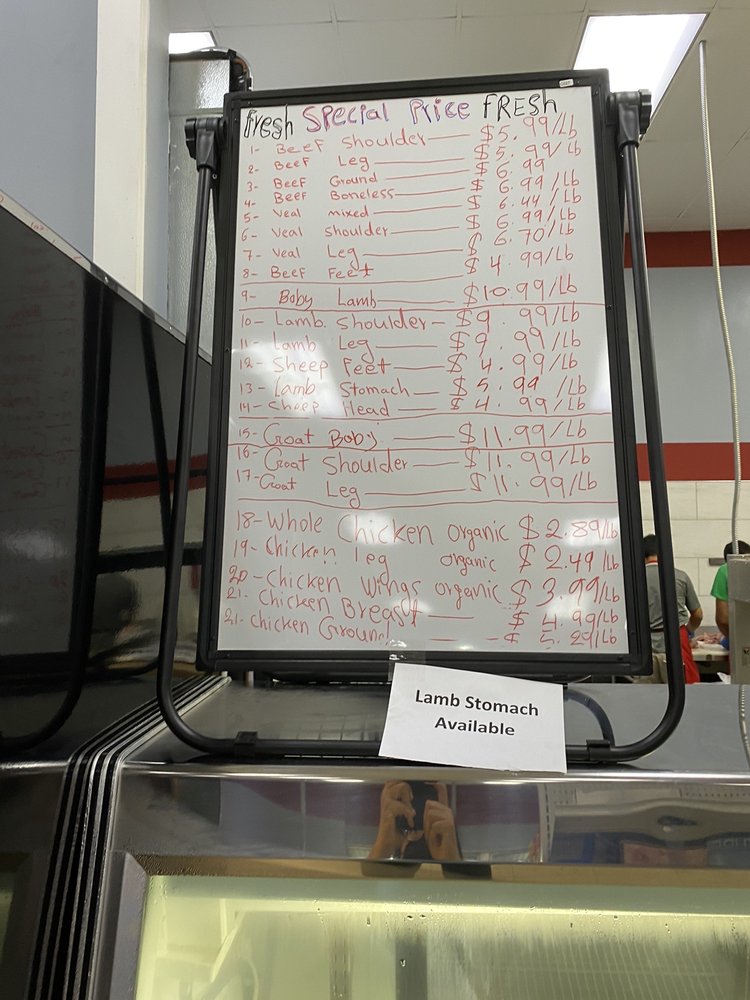 fresh Special Price fRESH
1- BeeF shoulder $5.99/Lb
2- BeeF Leg $5.99/Lb
3- BeeF Ground $6.99
4- BeeF Boneless $6.99/Lb
5- Veal mixed $6.44/Lb
6- Veal shoulder $6.99/Lb
7- Veal Leg $6.70/Lb
8- BeeF Feet $4.99/Lb
9- Baby Lamb $10.99/Lb
10- Lamb shoulder - $9.99/Lb
11- Lamb Leg $9.99/Lb
12- Sheep Feet $4.99/Lb
13- Lamb Stomach $5.99/Lb
14- Sheep Head $4.99/Lb
15- Goat Boby $11.99/Lb
16- Goat Shoulder $11.99/Lb
17- Goat Leg $11.99/Lb
18- Whole Chicken organic $2.89/Lb
19- Chicken leg organic $2.49/Lb
20- Chicken Wings organic $3.99/Lb
21. Chicken Breast $4.99/Lb
21. Chicken Ground $5.29/Lb
Lamb Stomach
Available